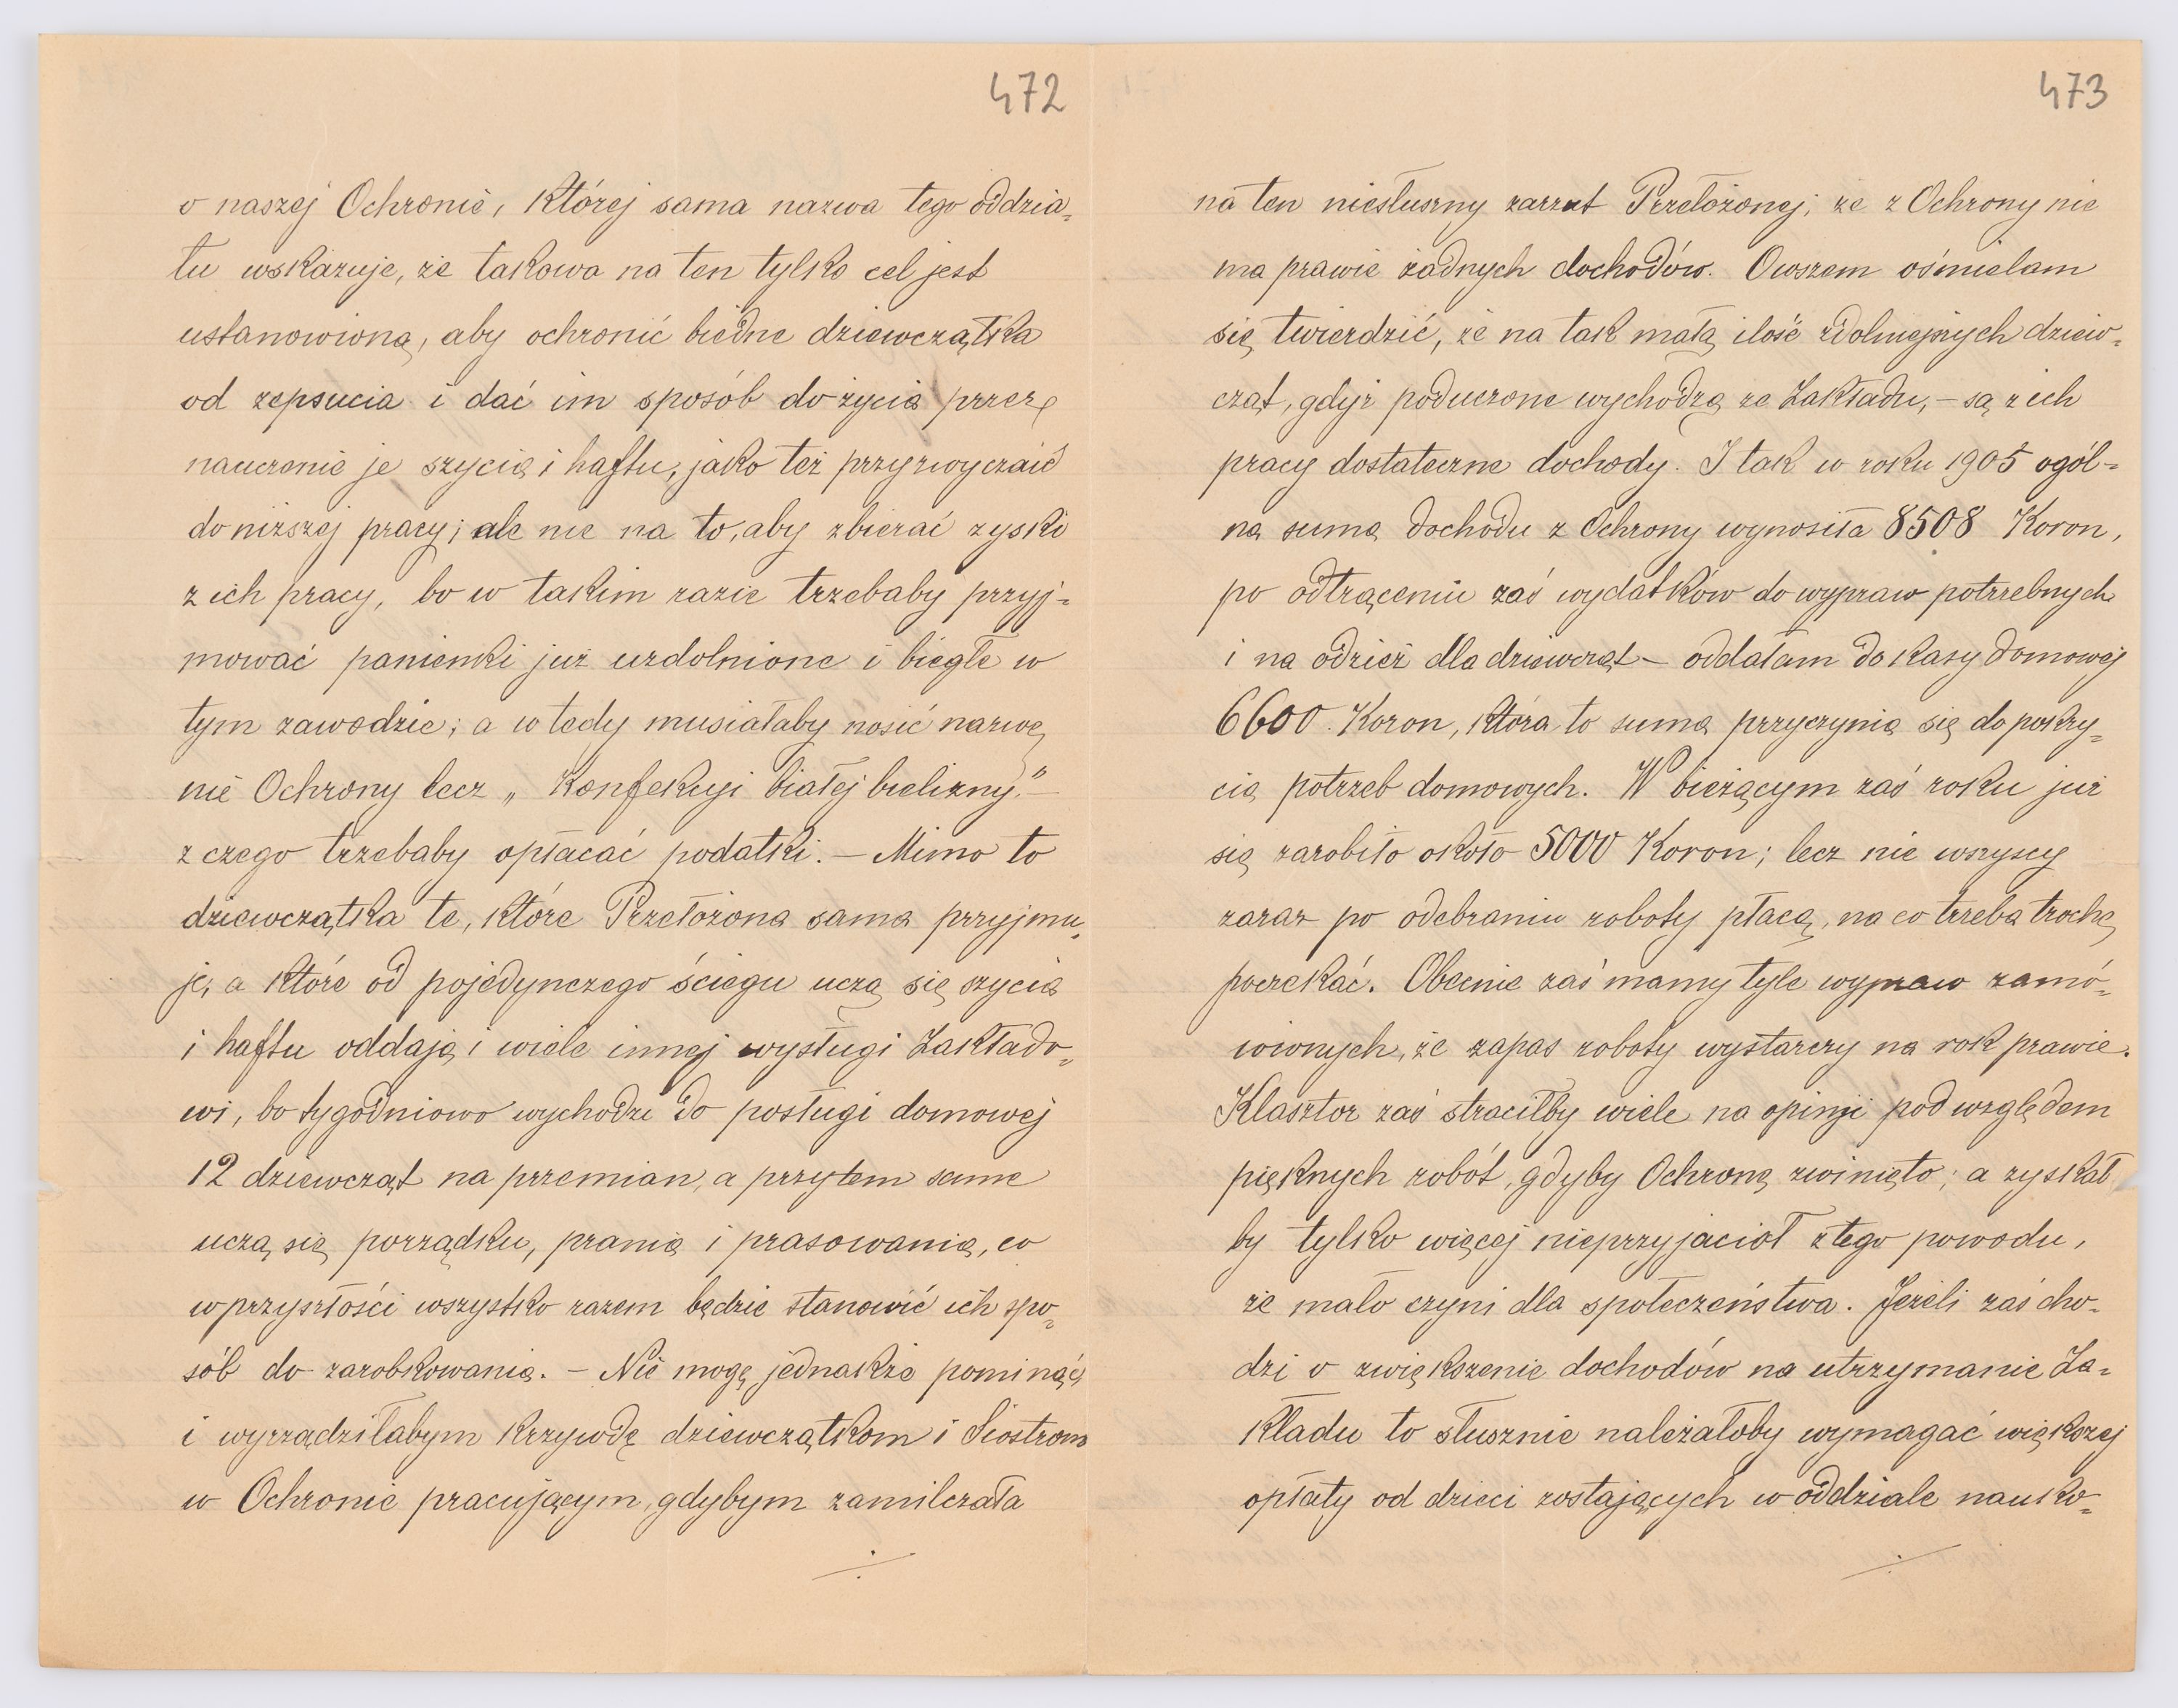 472
o naszej Ochronie, której sama nazwa tego oddzia=
łu wskazuje, że takowa na ten tylko cel jest
ustanowioną, aby ochronić biedne dziewczątka
od zepsucia i dać im sposób do życia przez
nauczenie je szycia i haftu, jako też przyzwyczaić
do niższej pracy; ale nie na to, aby zbierać zyski
z ich pracy, bo w takim razie trzebaby przyj=
mować panienki już uzdolnione i biegłe w
tym zawodzie; a w tedy musiałaby nosić nazwę
nie Ochrony lecz „Konfekcyi białej bielizny." –
z czego trzebaby opłacać podatki. – Mimo to
dziewczątka te, które Przełożona sama przyjmu=
je, a które od pojedynczego ściegu uczą się szycia
i haftu oddają i wiele innej wysługi Zakłado=
wi, bo tygodniowo wychodzi do posługi domowej
12 dziewcząt na przemian, a przytem same
uczą się porządku, prania i prasowania, co
w przyszłości wszystko razem będzie stanowić ich spo=
sób do zarobkowania. – Nie mogę jednakże pominąć,
i wyrządziłabym krzywdę dziewczątkom i Siostrom
w Ochronie pracującym, gdybym zamilczała
473
na ten niesłuszny zarzut Przełożonej; że z Ochrony nie
ma prawie żadnych dochodów. Owszem ośmielam
się twierdzić, że na tak małą ilość zdolniejszych dziew=
cząt, gdyż poduczone wychodzą ze Zakładu, – są z ich
pracy dostateczne dochody. I tak w roku 1905 ogól=
na suma dochodu z Ochrony wynosiła 8508 Koron,
po odtrąceniu zaś wydatków do wypraw potrzebnych
i na odzież dla dziewcząt – oddałam do kasy domowej
6600. Koron, która to suma przyczynia się do pokry=
cia potrzeb domowych. W bieżącym zaś roku już
się zarobiło około 5000 Koron; lecz nie wszyscy
zaraz po odebraniu roboty płacą, na co trzeba trochę
poczekać. Obecnie zaś mamy tyle wypraw zamó=
wionych, że zapas roboty wystarczy na rok prawie.
Klasztor zaś straciłby wiele na opinji pod względem
pięknych robót, gdyby Ochronę zwinięto; a zyskał
by tylko więcej nieprzyjaciół z tego powodu,
że mało czyni dla społeczeństwa. Jeżeli zaś cho=
dzi o zwiększenie dochodów na utrzymanie Za=
kładu to słusznie należałoby wymagać większej
opłaty od dzieci zostających w oddziale nauko=